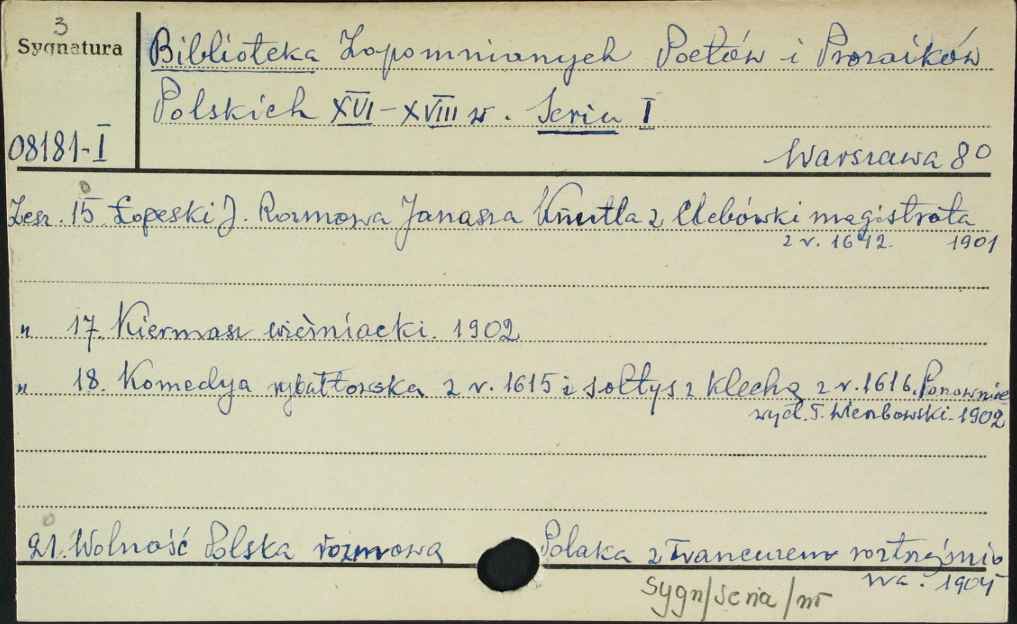 3
Sygnatura
Biblioteka Zapomnianych Poetów i Prozaików
Polskich XVI-XVIII w. Seria I
08181-I
Warszawa 8º
Zesz. 15 Łopeski J. Rozmowa Janasza Knutla z Chebówki magistrata
z r. 1642. 1901
" 17. Kiermasz wieśniacki. 1902
" 18. Komedya rybałtowska z r. 1615 i sołtys z klechą z r. 1616. Ponownie
wyd. T. Wierzbowski. 1902
21. Wolność Polska rozmową Polaka z Francuzem roztrząśnio
na. 1904
Sygn/seria/nr